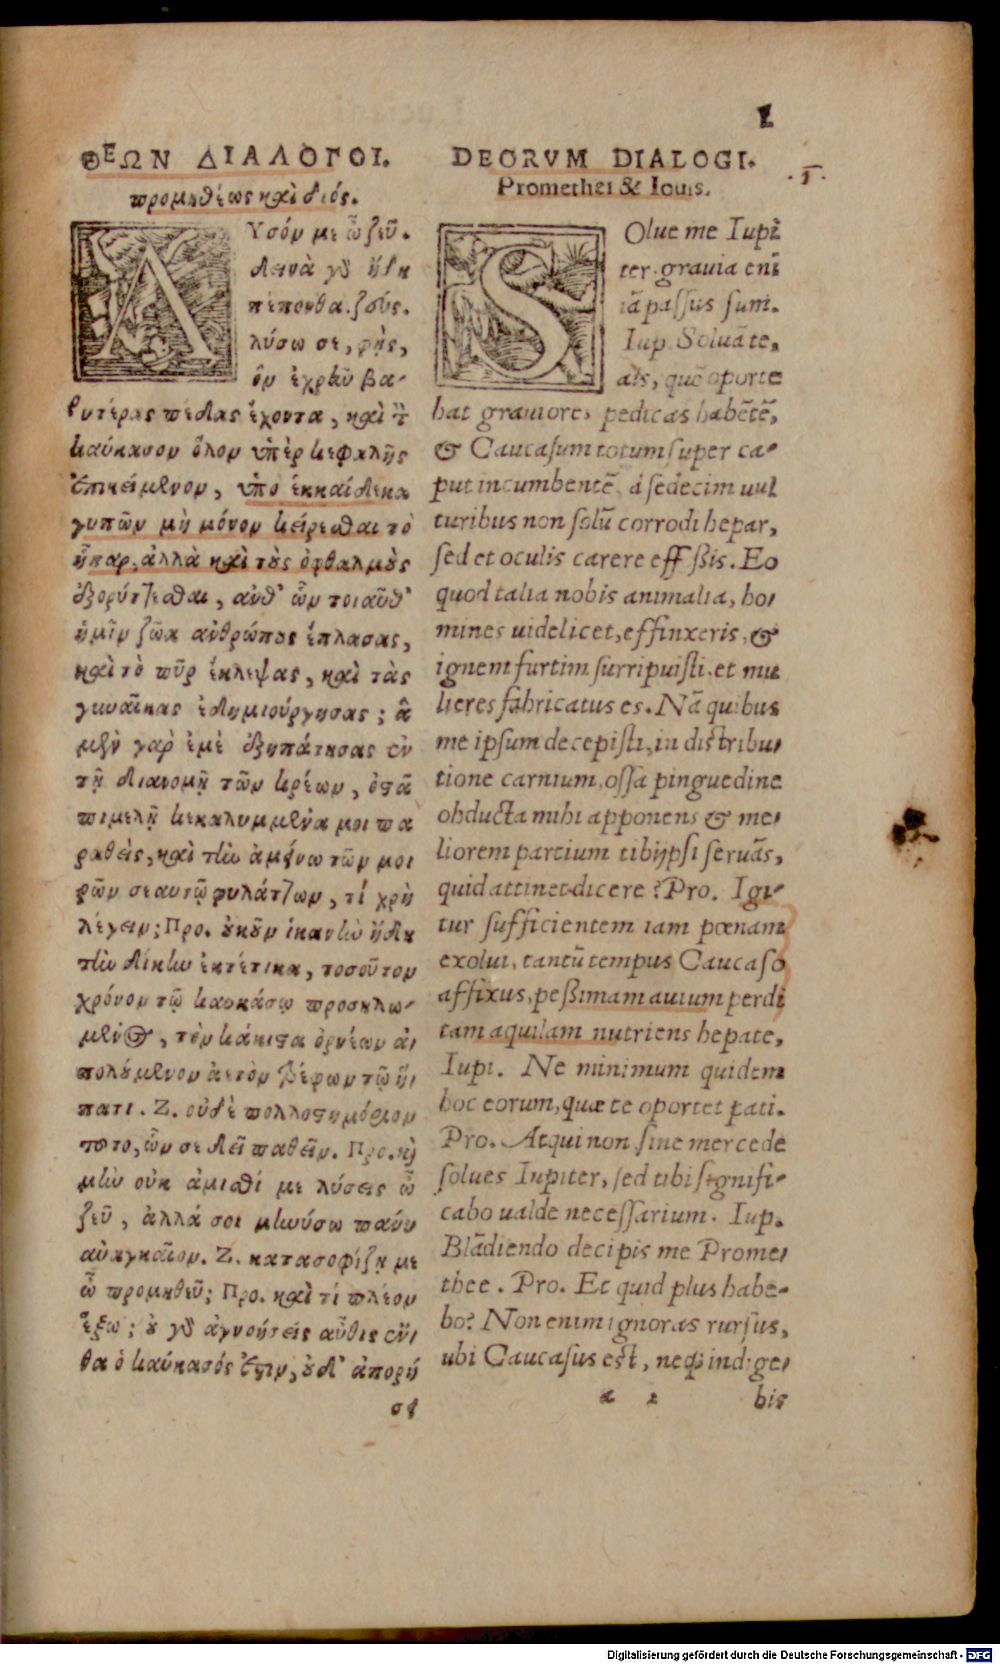 ΘΕΩΝ ΔΙΑΛΟΓΟΙ.
προμηθέως καὶ διός.
ΛΥσόν με ὦ ζεῦ.
δεινὰ γὰρ ἤδη
πέπονθα. ζεύς.
λύσω σε, φῂς,
ὃν ἐχρῆν βα-
ρυτέρας πέδας ἔχοντα, καὶ τὸ
καύκασον ὅλον ὑπὲρ κεφαλῆς
ἐπικείμενον, ὑπὸ ἑκκαίδεκα
γυπῶν μὴ μόνον κείρεσθαι τὸ
ἧπαρ, ἀλλὰ καὶ τοὺς ὀφθαλμοὺς
ἐξορύττεσθαι, ἀνθ' ὧν τοιαῦθ'
ἡμῖν ζῶα ἀνθρώπους ἔπλασας,
καὶ τὸ πῦρ ἔκλεψας, καὶ τὰς
γυναῖκας ἐδημιούργησας; ἃ
μὲν γὰρ ἐμὲ ἐξηπάτησας ἐν
τῇ διανομῇ τῶν κρέων, ὀστᾶ
πιμελῇ κεκαλυμμένα μοι πα
ραθεὶς, καὶ τὴν ἀμείνω τῶν μοι
ρῶν σεαυτῷ φυλάττων, τί χρὴ
λέγειν; Προ. οὐκοῦν ἱκανὴν ἤδη
τὴν δίκην ἐκτέτικα, τοσοῦτον
χρόνον τῷ καυκάσῳ προσηλω-
μένος, τὸν κάκιστα ὀρνέων ἀ-
πολούμενον ἀετὸν τρέφων τῷ ἥ-
πατι. Ζ. οὐδὲ πολλοστημόριον
τοῦτο, ὧν σε δεῖ παθεῖν. Προ. καὶ
μὴν οὐκ ἀμισθί με λύσεις ὦ
ζεῦ, ἀλλά σοι μηνύσω πάνυ
ἀναγκαῖον. Ζ. κατασοφίζῃ με
ὦ προμηθεῦ; Προ. καὶ τί πλέον
ἕξω; οὐ γὰρ ἀγνοήσεις αὖθις ἔν-
θα ὁ καύκασός ἐστιν, οὐδ' ἀπορή
σει
1
DEORVM DIALOGI.
.1.
Promethei & Iouis.
SOlue me Iupi
ter. grauia eni
iā passus sum.
Iup. Soluā te,
ais, quē oporte
bat grauiores pedicas habētē,
& Caucasum totum super ca-
put incumbentē, à sedecim uul
turibus non solū corrodi hepar,
sed et oculis carere effossis. Eo
quod talia nobis animalia, ho-
mines uidelicet, effinxeris, &
ignem furtim surripuisti. et mu
lieres fabricatus es. Nā quibus
me ipsum decepisti, in distribu-
tione carnium, ossa pinguedine
obducta mihi apponens & me-
liorem partium tibijpsi seruās,
quid attinet dicere? Pro. Igi-
tur sufficientem iam pœnam
exolui, tantū tempus Caucaso
affixus, pessimam auium perdi
tam aquilam nutriens hepate,
Iupi. Ne minimum quidem
hoc eorum, quæ te oportet pati.
Pro. Atqui non sine mercede
solues Iupiter, sed tibi signifi-
cabo ualde necessarium. Iup.
Blādiendo decipis me Prome-
thee. Pro. Et quid plus habe-
bo? Non enim ignoras rursus,
ubi Caucasus est, neque indige-
a 2 bis
Digitalisierung gefördert durch die Deutsche Forschungsgemeinschaft - DFG